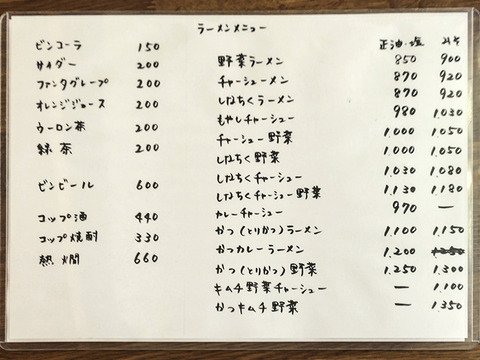 ラーメンメニュー
ビンコーラ 150
サイダー 200
ファンタグレープ 200
オレンジジュース 200
ウーロン茶 200
緑茶 200
ビンビール 600
コップ酒 440
コップ焼酎 330
熱燗 660
正油・塩 みそ
野菜ラーメン 850 900
チャーシューメン 870 920
しなちくラーメン 870 920
もやしチャーシュー 980 1.030
チャーシュー野菜 1.000 1.050
しなちく野菜 1.000 1.050
しなちくチャーシュー 1.030 1.080
しなちくチャーシュー野菜 1.130 1.180
カレーチャーシュー 970 —
かつ(とりかつ)ラーメン 1.100 1.150
かつカレーラーメン 1.200
かつ(とりかつ)野菜 1.250 1.300
キムチ野菜チャーシュー — 1.100
かつキムチ野菜 — 1.350